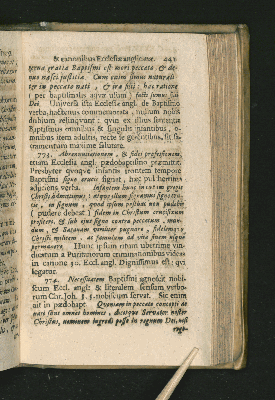 & omnibus Ecclesiæ anglicanæ. 441
terna gratia Baptismi est mori peccato & de-
nuo nasci justitiæ. Cum enim simus naturali-
ter in peccato nati, & iræ filii: hac ratione
(per baptismalis aquæ usum) facti sumus filii
Dei. Universa ista Ecclesiæ angl. de Baptismo
verba, hactenus commemorata, nullam nobis
dubium relinquunt: quin ex illius sententia
Baptismus omnibus & singulis infantibus, o-
mnibus item adultis, recte se gerentibus, sit sa-
cramentum maxime salutare.
773. Abrenuntiationem, & fidei professionem,
etiam Ecclesia angl. pædobaptismo præmittit.
Presbyter quoque infantis frontem tempore
Baptismi signo crucis signat, hæc pulcherrima
adjiciens verba.
Christi admittimus; atque illum
tu, in signum, quod ipsum posthac non pudebit
(pudere debeat) fidem in Christum crucifixum
profiteri, & sub ejus signo contra peccatum, mun-
dum, & Satanam viriliter pugnare, fidelemque
Christi militem, ac famulum ad vitæ finem usque
permanere. Hunc ipsum ritum uberrime vin-
dicatum a Puritanorum criminationibus videas
in canone 30. Eccl. angl. Dignissimus est, qui
legatur.
774. Necessitatem Baptismi agnoscit nobis-
cum Eccl. angl. & literalem sensum verbo-
rum Chr. Joh. 3. 5. nobiscum servat. Sic enim
ait in pædobapt. Quoniam in peccato concepti ac
nati sint omnes homines, dicatque Servator noster
Christus, neminem ingredi posse in regnum Dei, nisi
rege-